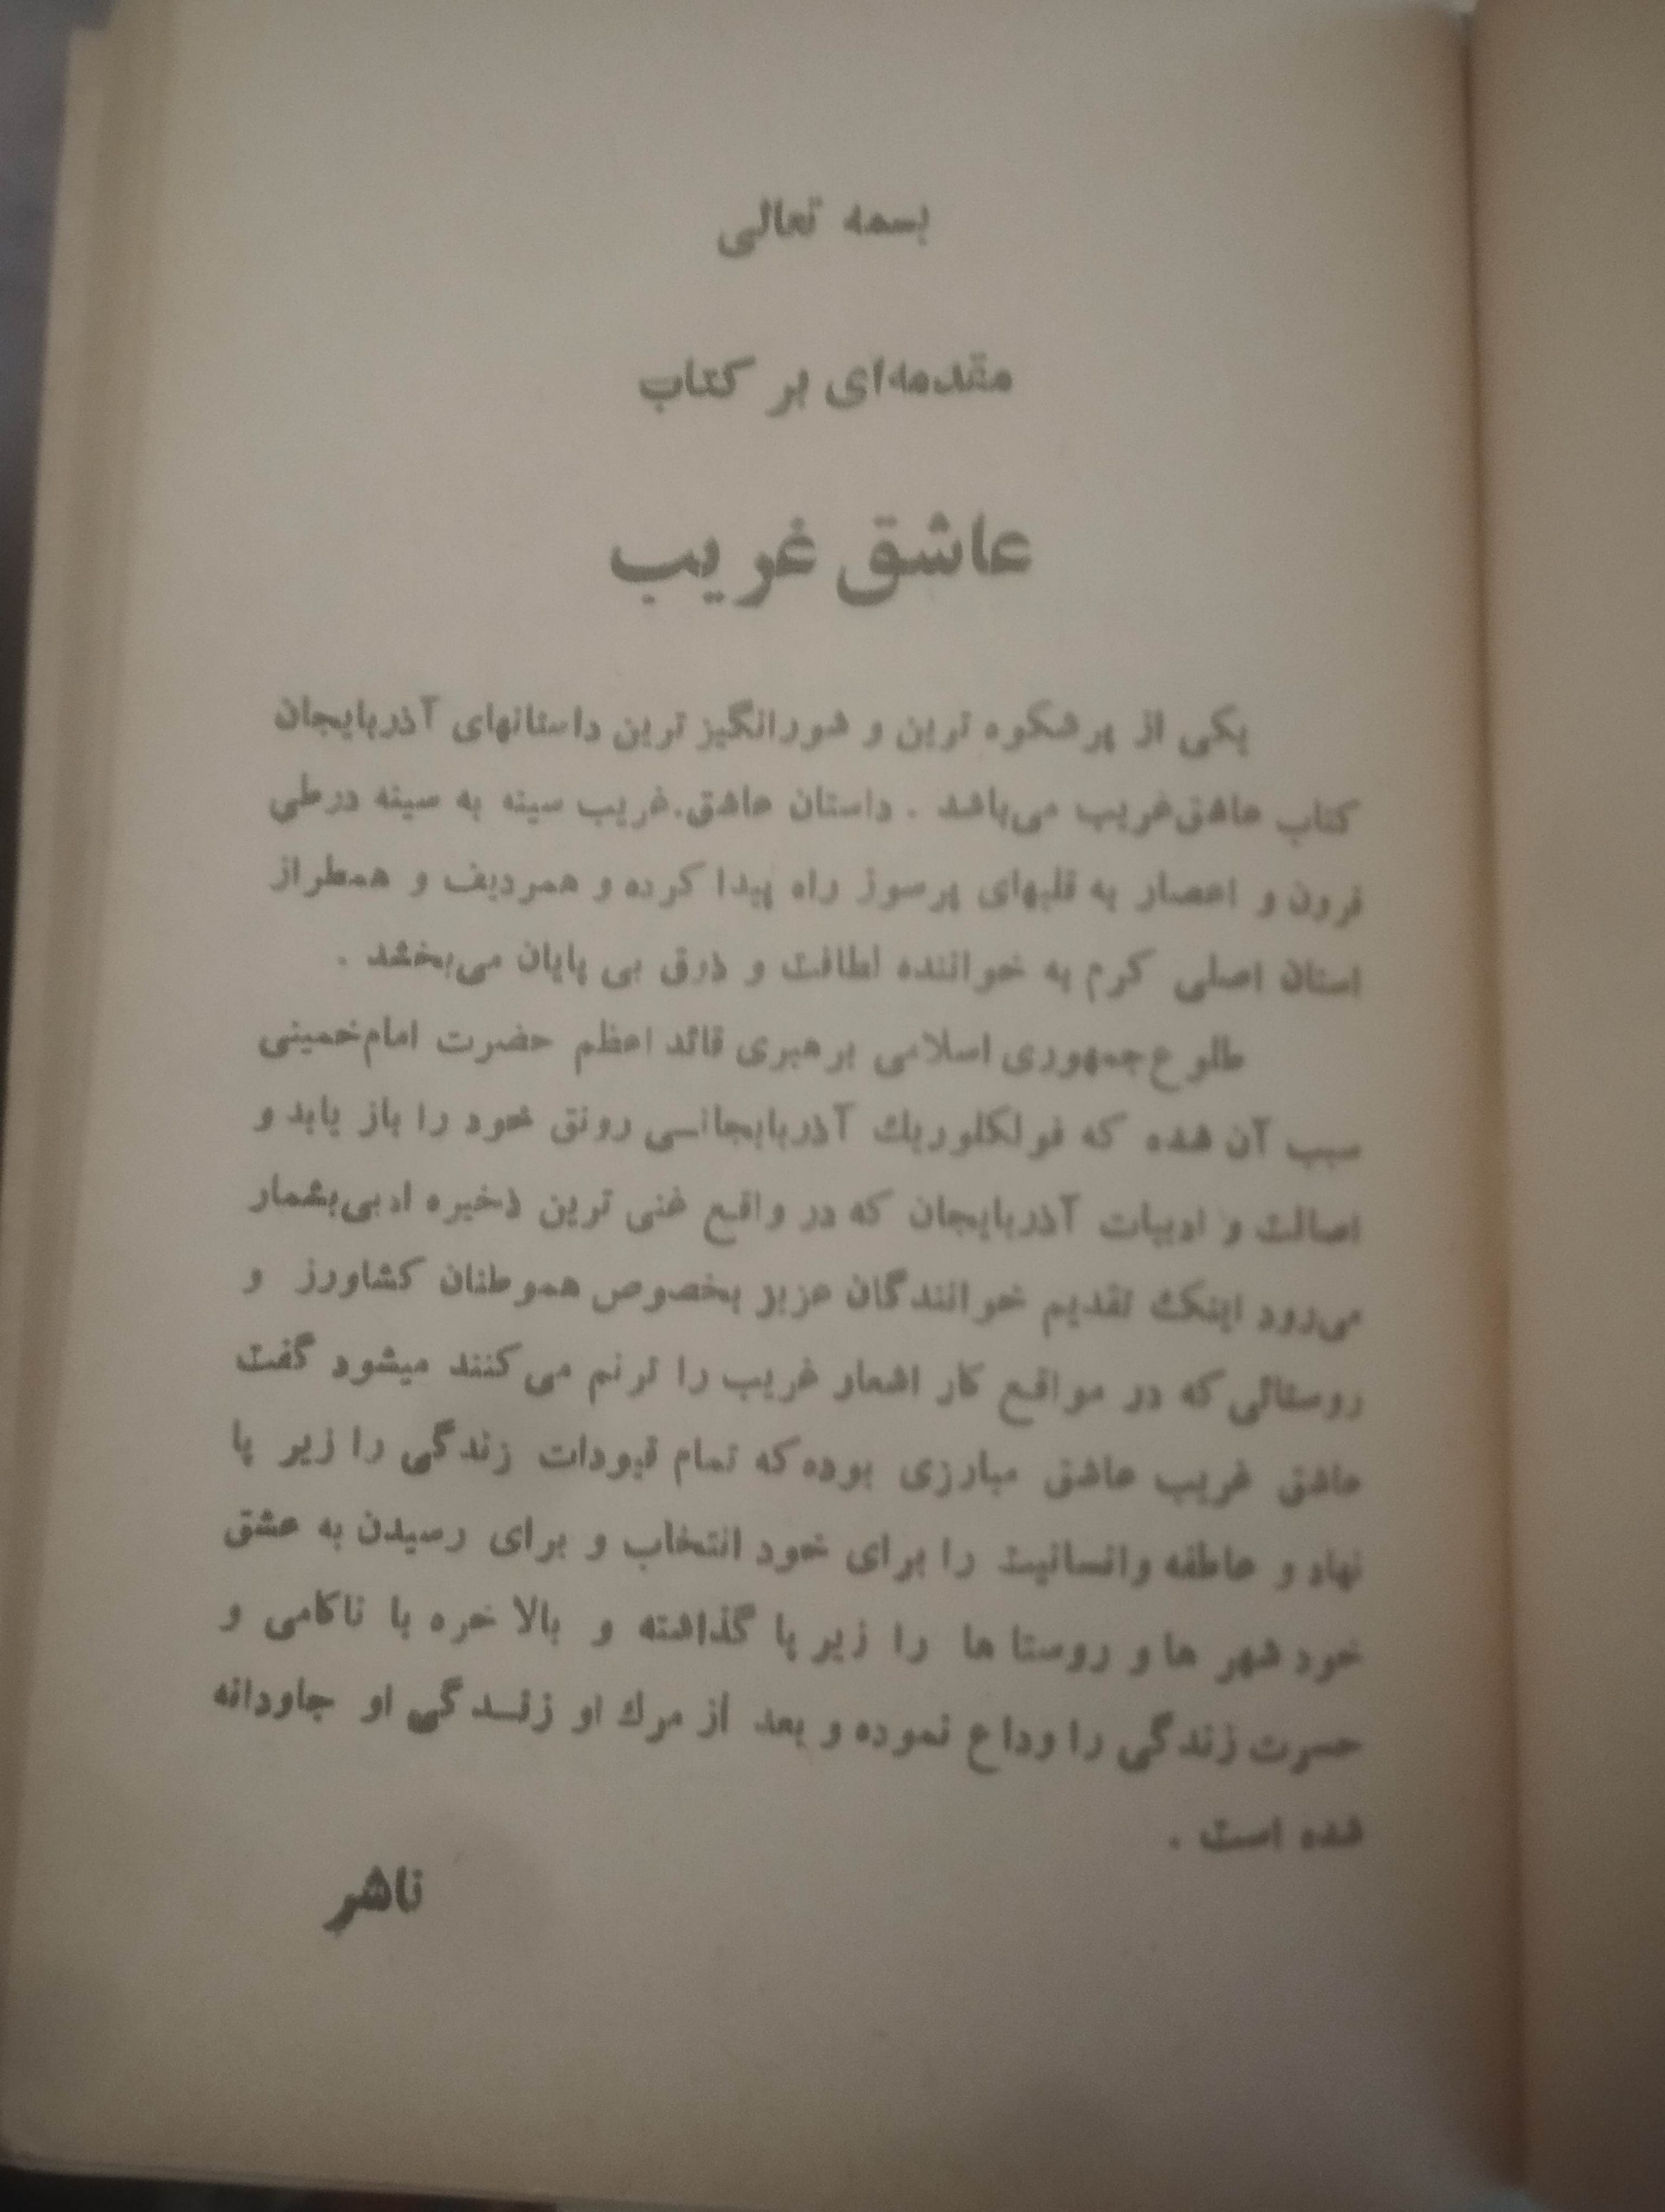 بسمه تعالی
مقدمه‌ای بر کتاب
عاشق غریب
یکی از پرشکوه ترین و شورانگیز ترین داستانهای آذربایجان
کتاب عاشق‌غریب می‌باشد . داستان عاشق.غریب سینه به سینه درطی
قرون و اعصار به قلبهای پرسوز راه پیدا کرده و همردیف و همطراز
استان اصلی کرم به خواننده لطافت و ذوق بی پایان می‌بخشد .
طلوع جمهوری اسلامی برهبری قائد اعظم حضرت امام‌خمینی
سبب آن شده که فولکلوریك آذربایجانـی رونق خود را باز یابد و
اصالت و ادبیات آذربایجان که در واقع غنی ترین ذخیره ادبی‌بشمار
می‌رود اینک تقدیم خوانندگان عزیز بخصوص هموطنان کشاورز و
روستائی که در مواقع کار اشعار غریب را ترنم می‌کنند میشود گفت
عاشق غریب عاشق مبارزی بوده که تمام قیودات زندگی را زیر پا
نهاد و عاطفه وانسانیت را برای خود انتخاب و برای رسیدن به عشق
خود شهر ها و روستا ها را زیر پا گذاشته و بالا خره با ناکامی و
حسرت زندگی را وداع نموده و بعد از مرك او زنـدگی او جاودانه
شده است .
ناشر